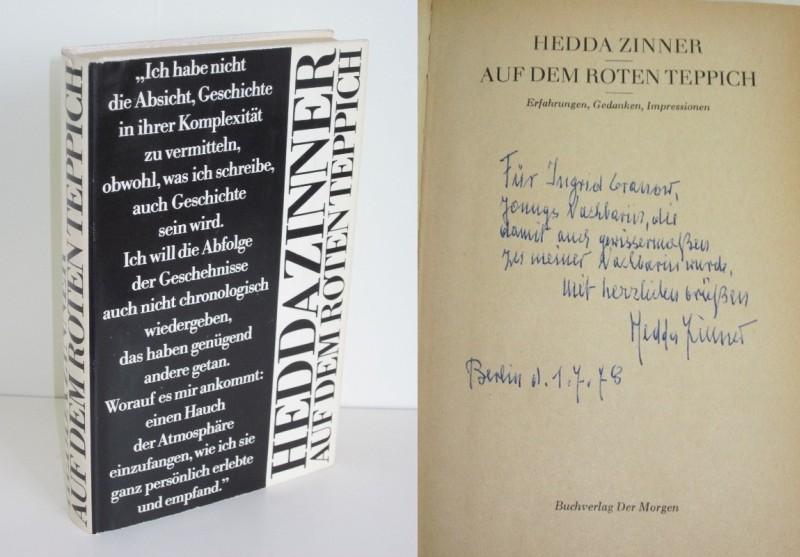 „Ich habe nicht
die Absicht, Geschichte
in ihrer Komplexität
zu vermitteln,
obwohl, was ich schreibe,
auch Geschichte
sein wird.
Ich will die Abfolge
der Geschehnisse
auch nicht chronologisch
wiedergeben,
das haben genügend
andere getan.
Worauf es mir ankommt:
einen Hauch
der Atmosphäre
einzufangen, wie ich sie
ganz persönlich erlebte
und empfand.”
HEDDA ZINNER
AUF DEM ROTEN TEPPICH
AUF DEM ROTEN TEPPICH
HEDDA ZINNER
AUF DEM ROTEN TEPPICH
Erfahrungen, Gedanken, Impressionen
Für Ingrid Granow,
Nachbarin, die
damit auch gewissermaßen
zu meiner Nachbarin wurde,
Mit herzlichen Grüßen
Hedda Zinner
Berlin d. 1.7.78
Buchverlag Der Morgen